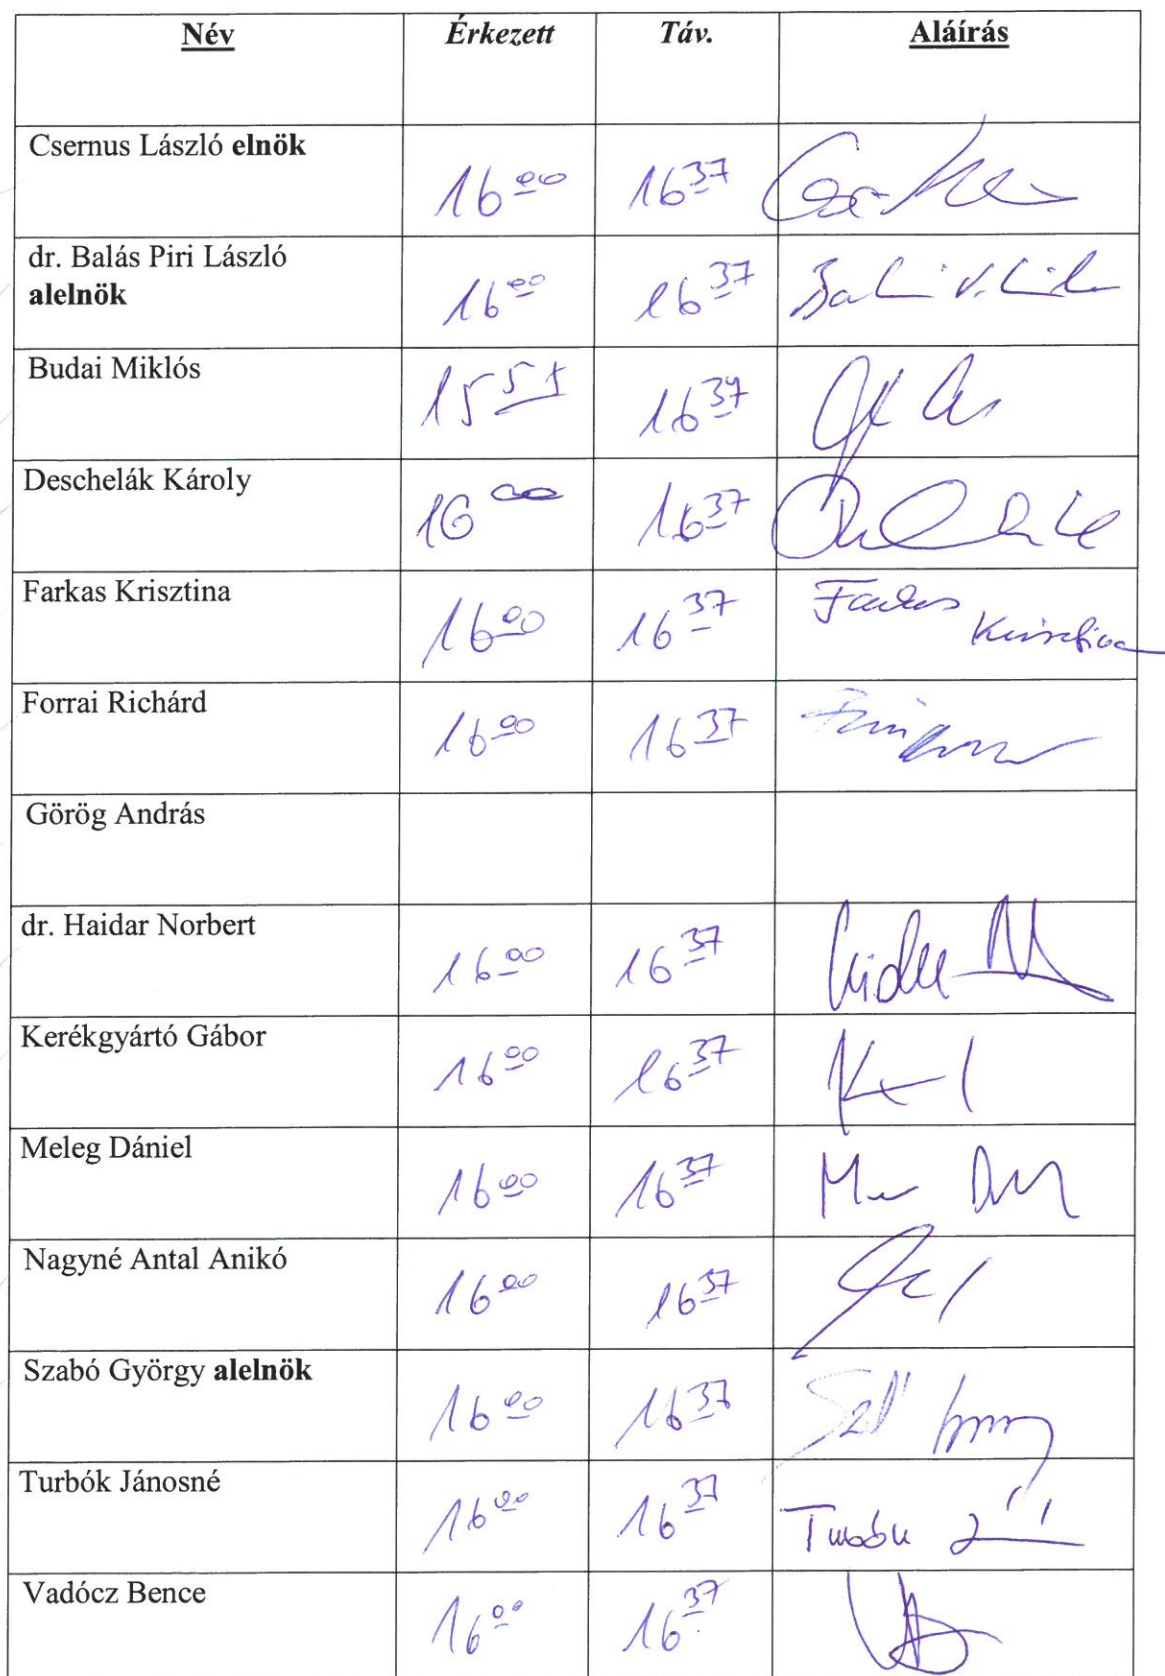 Név Érkezett Táv. Aláírás
Csernus László elnök 16 00 16 37
dr. Balás Piri László
alelnök 16 00 16 37
Budai Miklós 15 55 16 37
Deschelák Károly 16 00 16 37
Farkas Krisztina 16 00 16 37 Farkas Krisztina
Forrai Richárd 16 00 16 37
Görög András
dr. Haidar Norbert 16 00 16 37
Kerékgyártó Gábor 16 00 16 37
Meleg Dániel 16 00 16 37
Nagyné Antal Anikó 16 00 16 37
Szabó György alelnök 16 00 16 37
Turbók Jánosné 16 00 16 37
Vadócz Bence 16 00 16 37